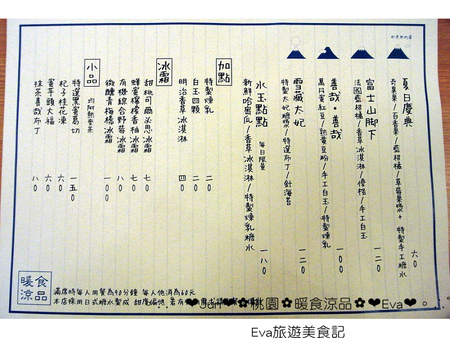 夏日慶典
奇異果/百香果/藍柑橘/草莓果漿+特製手工糖水 六〇
富士山腳下
法國藍柑橘/香草冰淇淋/優格/手工白玉 一二〇
善哉 善哉
萬丹蜜紅豆/熟黃豆粉/手工白玉/特製煉乳 一〇〇
雪藏太妃
特製太妃糖漿/特選布丁/針海苔 一二〇
水玉點點 每日限量
新鮮哈密瓜/香草冰淇淋/特製煉乳糖水 一八〇
加點
特製煉乳 二〇
白玉四顆 二〇
明治香草冰淇淋 四〇
冰霜
甜桃司爾必思冰霜 七〇
蜂蜜檸檬香柚冰霜 七〇
有機綜合野莓冰霜 八〇
微醺青梅橋冰霜 一〇〇
小品 均附熱麥茶
特選黑蜜葛切 一五〇
杞子桂花凍 六〇
蜜芋頭大福 六〇
抹茶善哉布丁 八〇
暖食
涼品
滿席時每人用餐為90分鐘 每人低消為60元
本店採用日式糖水製成 甜度偏低
❤Jun❤✿桃園✿暖食涼品✿❤Eva❤
Eva旅遊美食記